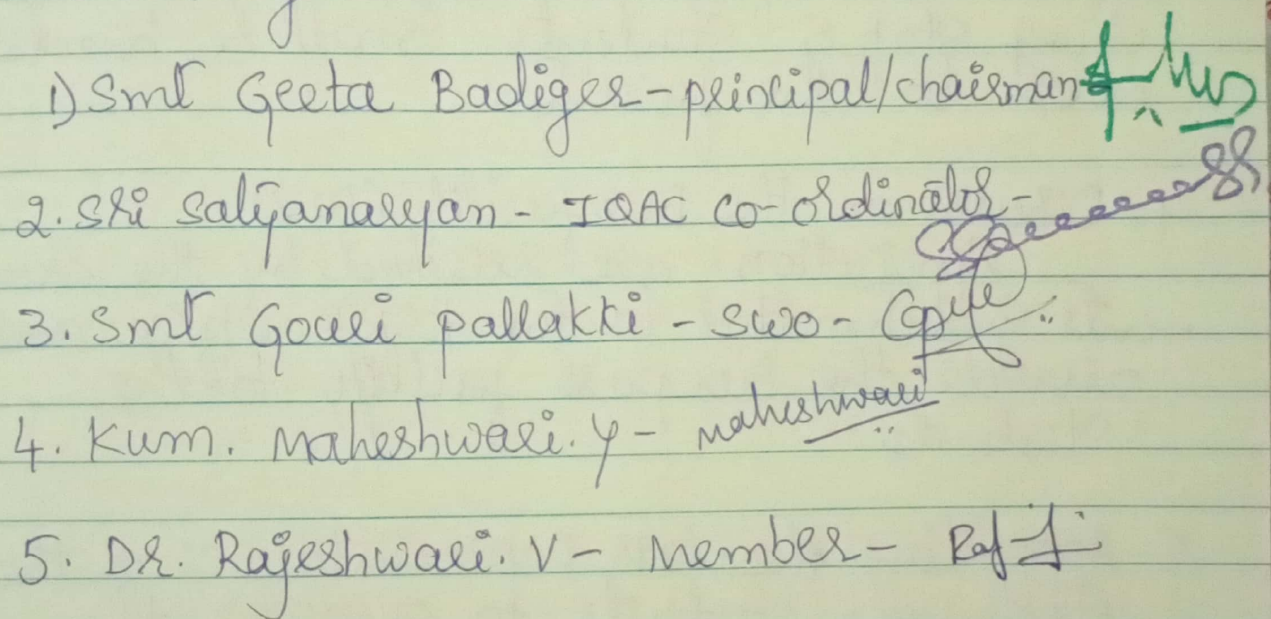 1) Smt Geeta Badiger - principal/chairman -
2. Sri Satyanarayan - IQAC co-ordinator -
3. Smt Gouri pallakki - SWO -
4. Kum. Maheshwari. Y - Maheshwari
5. Dr. Rajeshwari. V - Member -